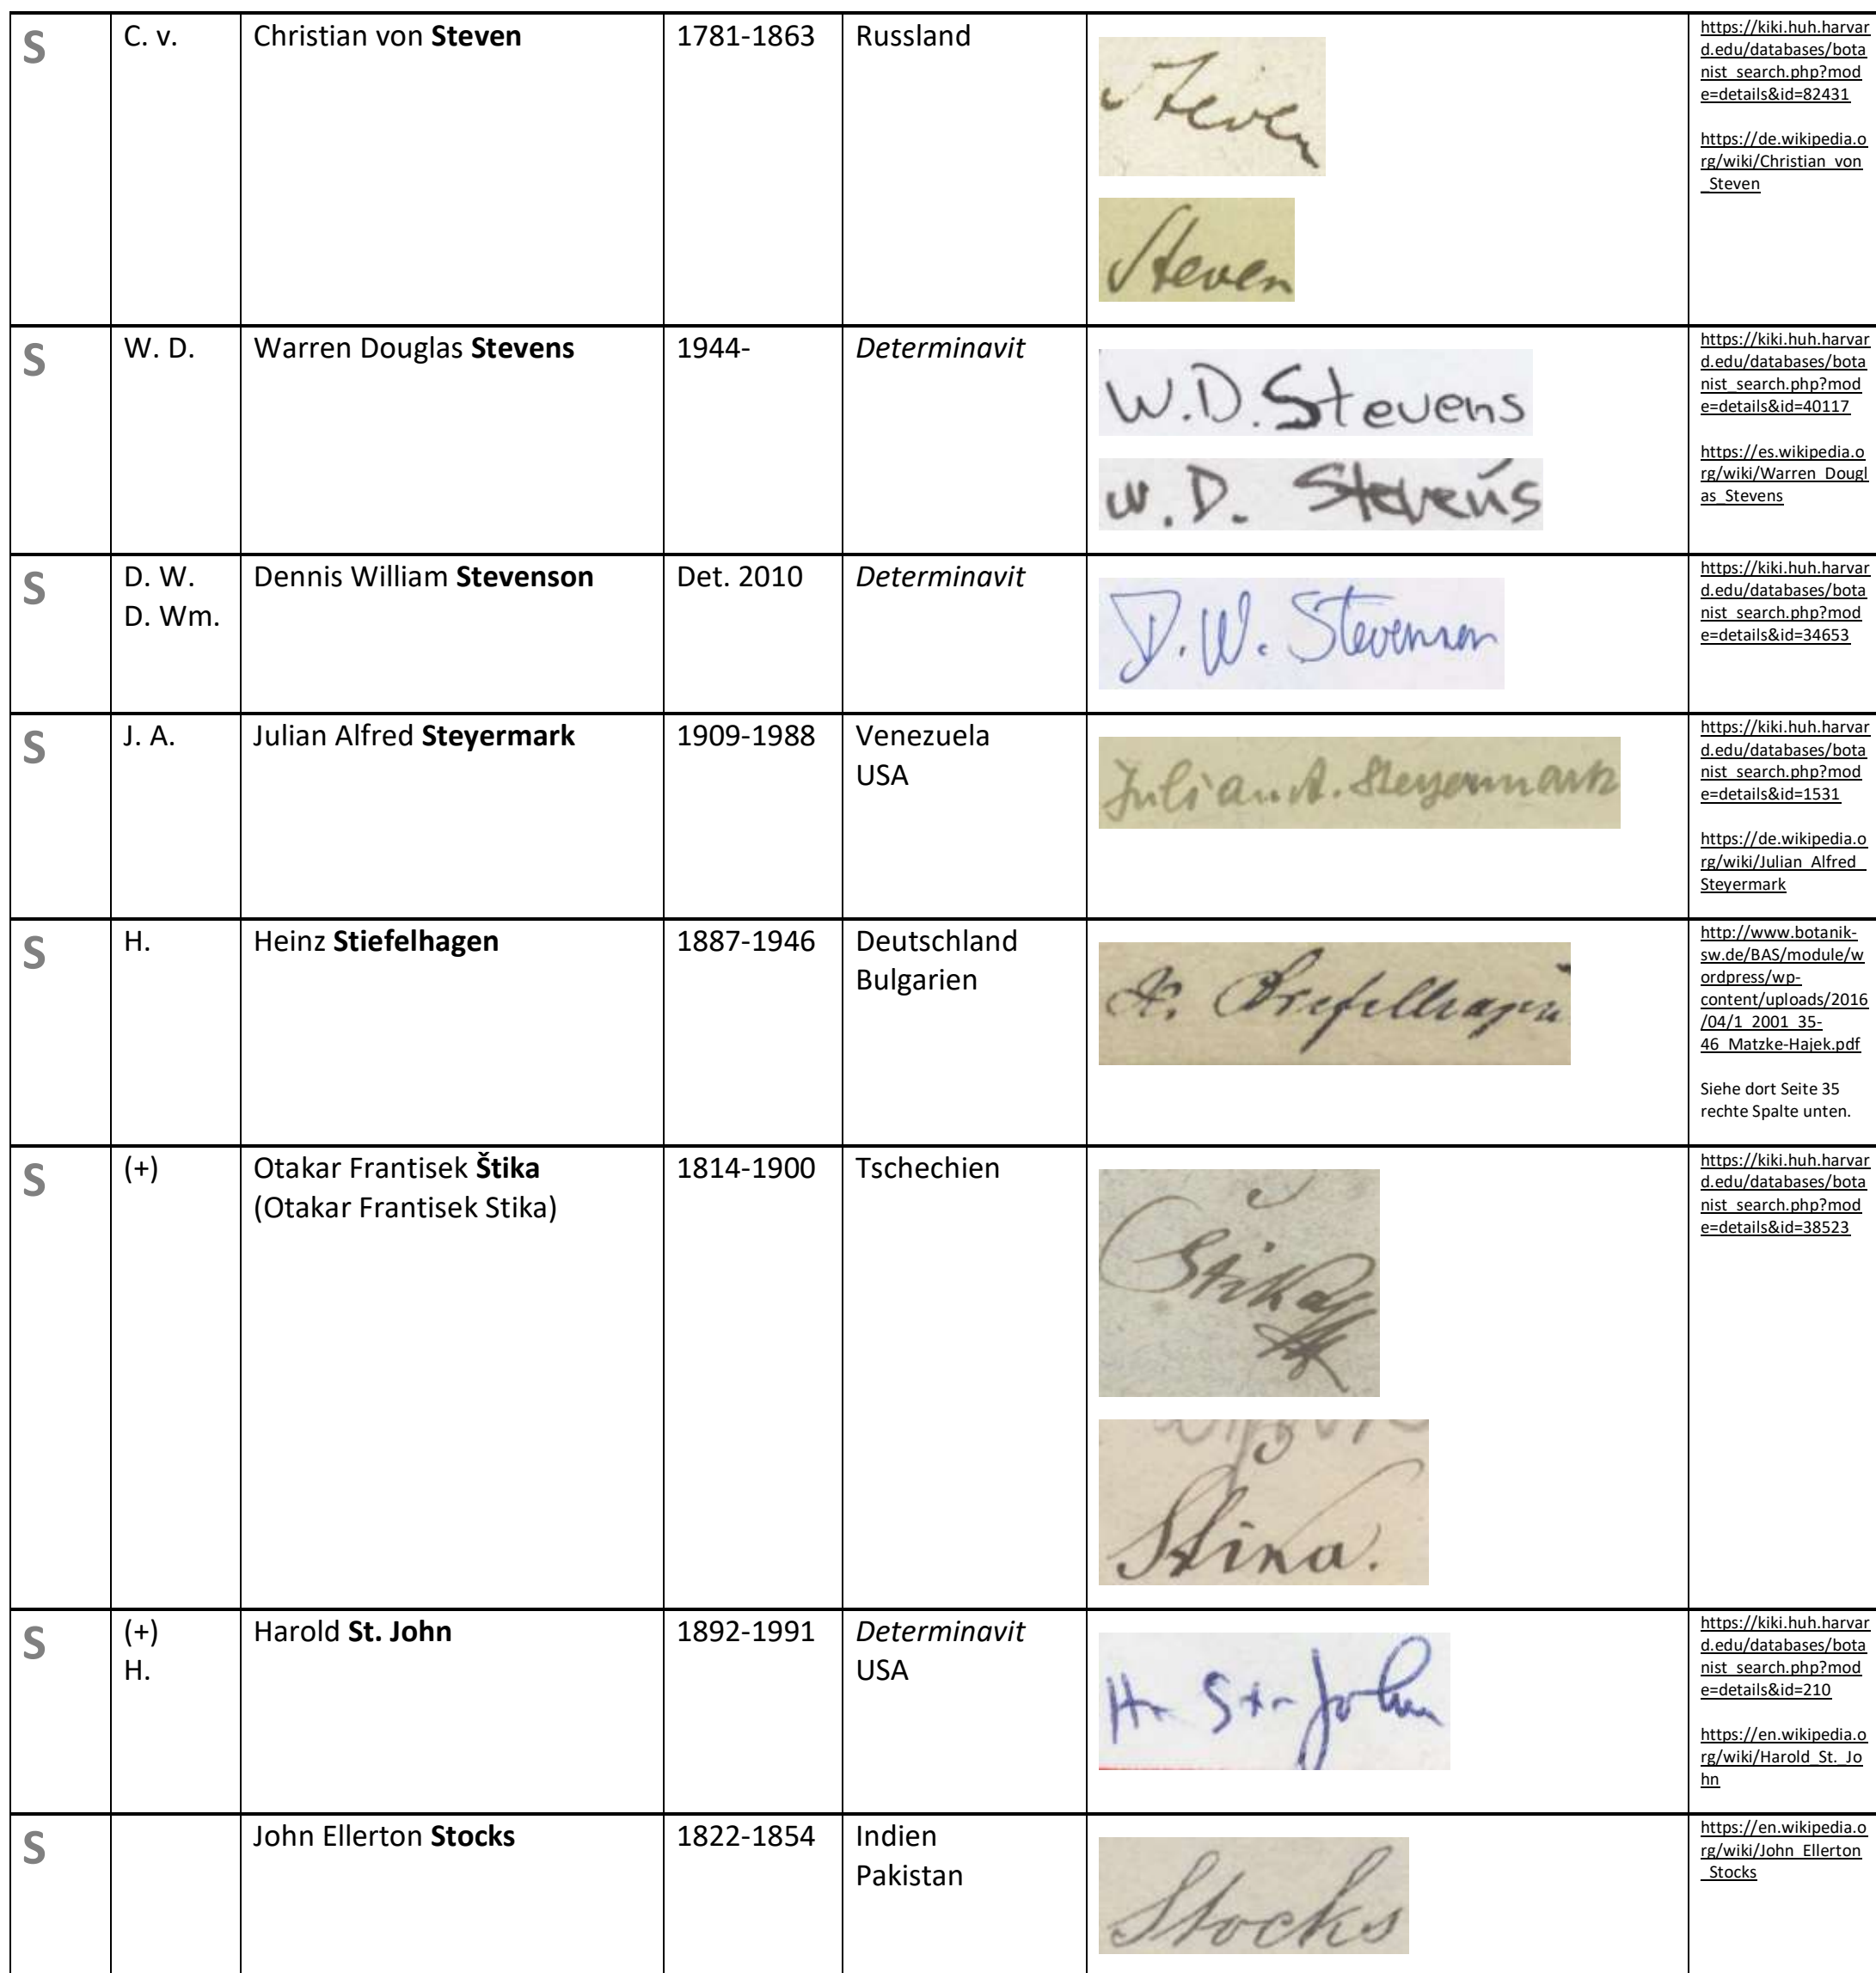 S
C. v.
Christian von Steven
1781-1863
Russland
Steven
Steven
https://kiki.huh.harvar
d.edu/databases/bota
nist_search.php?mod
e=details&id=82431
https://de.wikipedia.o
rg/wiki/Christian_von
_Steven
S
W. D.
Warren Douglas Stevens
1944-
Determinavit
W.D. Stevens
W. D. Stevens
https://kiki.huh.harvar
d.edu/databases/bota
nist_search.php?mod
e=details&id=40117
https://es.wikipedia.o
rg/wiki/Warren_Dougl
as_Stevens
S
D. W.
D. Wm.
Dennis William Stevenson
Det. 2010
Determinavit
D. W. Stevenson
https://kiki.huh.harvar
d.edu/databases/bota
nist_search.php?mod
e=details&id=34653
S
J. A.
Julian Alfred Steyermark
1909-1988
Venezuela
USA
Julian A. Steyermark
https://kiki.huh.harvar
d.edu/databases/bota
nist_search.php?mod
e=details&id=1531
https://de.wikipedia.o
rg/wiki/Julian_Alfred_
Steyermark
S
H.
Heinz Stiefelhagen
1887-1946
Deutschland
Bulgarien
H. Stiefelhagen
http://www.botanik-
sw.de/BAS/module/w
ordpress/wp-
content/uploads/2016
/04/1_2001_35-
46_Matzke-Hajek.pdf
Siehe dort Seite 35
rechte Spalte unten.
S
(+)
Otakar Frantisek Štika
(Otakar Frantisek Stika)
1814-1900
Tschechien
Štika
Štika.
https://kiki.huh.harvar
d.edu/databases/bota
nist_search.php?mod
e=details&id=38523
S
(+)
H.
Harold St. John
1892-1991
Determinavit
USA
H. St. John
https://kiki.huh.harvar
d.edu/databases/bota
nist_search.php?mod
e=details&id=210
https://en.wikipedia.o
rg/wiki/Harold_St._Jo
hn
S
John Ellerton Stocks
1822-1854
Indien
Pakistan
Stocks
https://en.wikipedia.o
rg/wiki/John_Ellerton
_Stocks